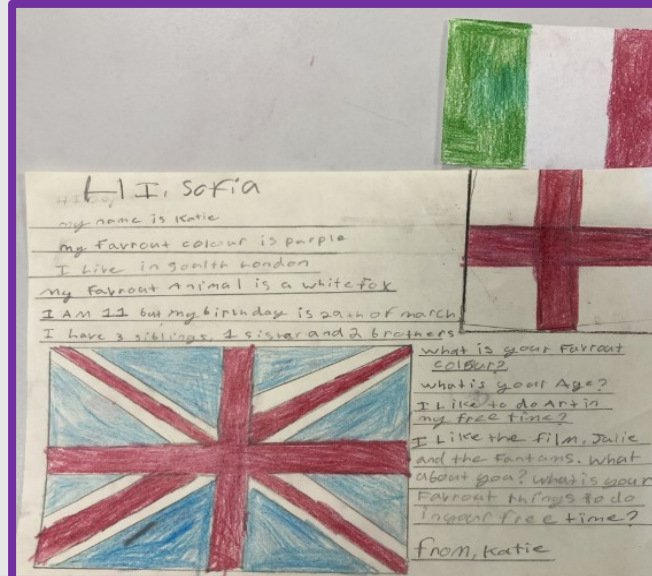 HI, Sofia
my name is Katie
my Favrout colour is purple
I Live in South London
My Favrout Animal is a white fox
I AM 11 but my birthday is 29th of march
I have 3 siblings, 1 sister and 2 brothers
what is your Favrout
colour?
what is your Age?
I Like to do Art in
my free time?
I Like the film, Julie
and the Fantums. What
about you? what is your
Favrout things to do
in your free time?
from, Katie